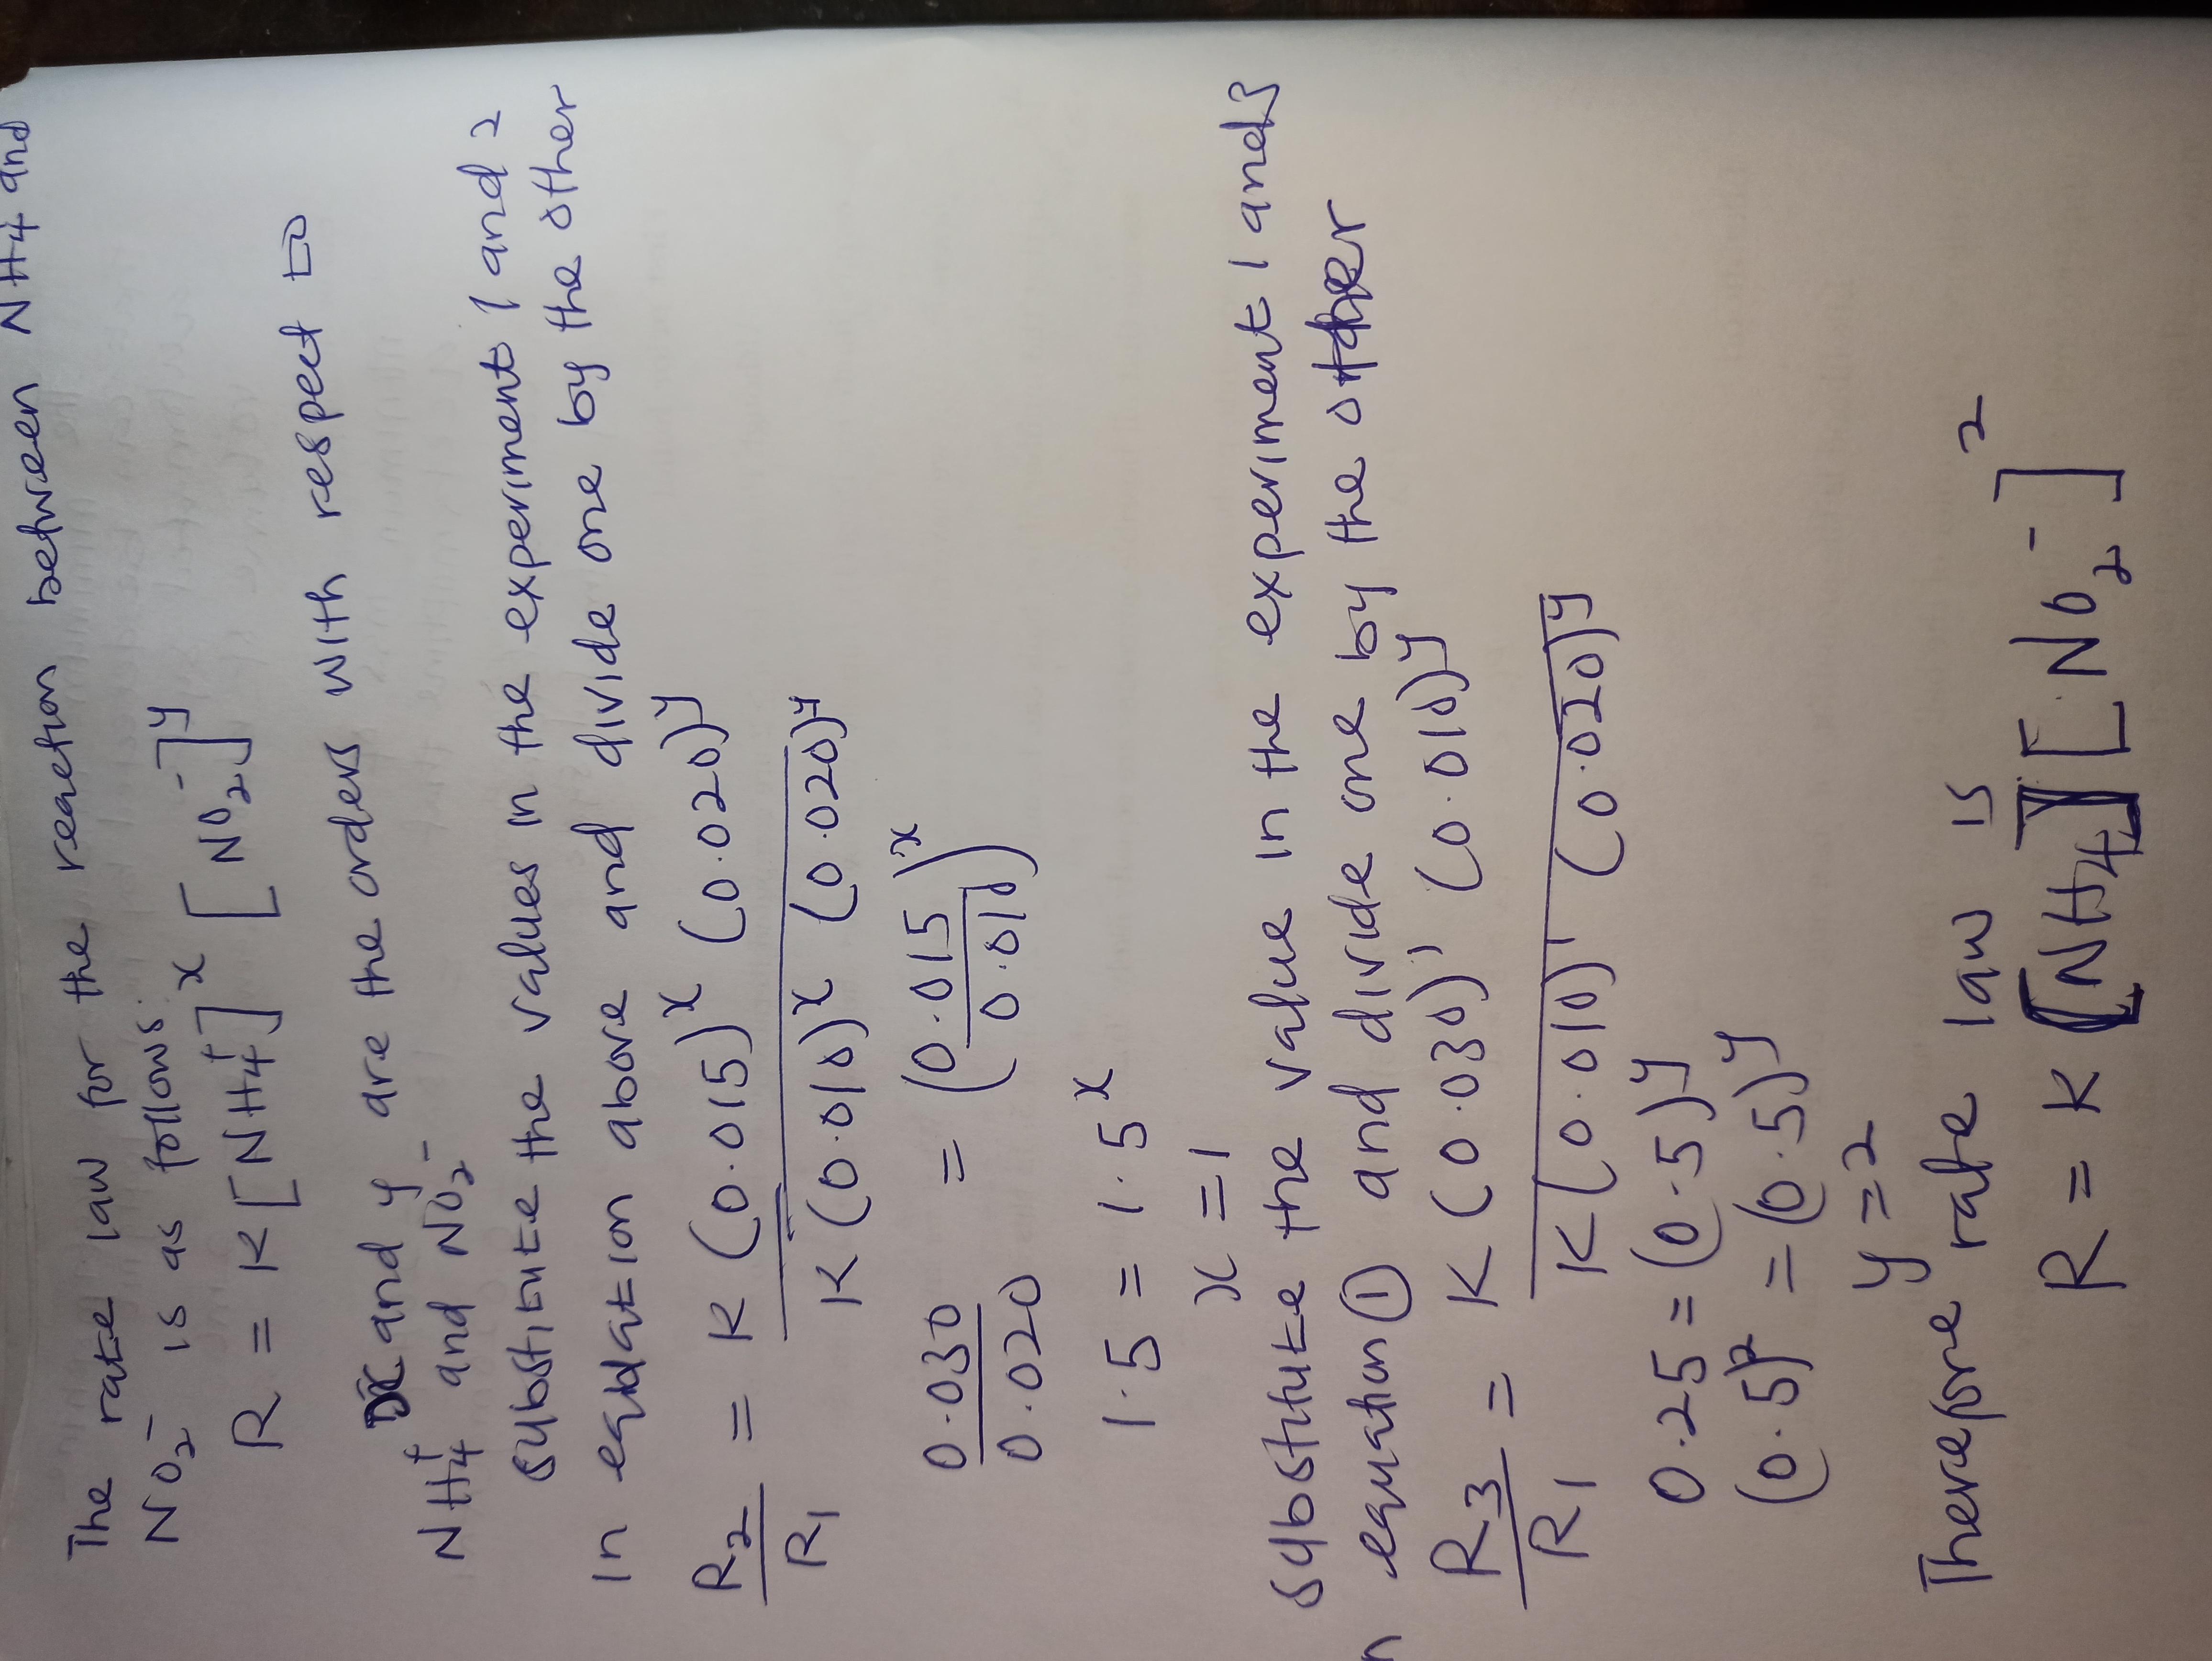 The rate law for the reaction between NH4 and
NO2⁻ is as follows:
R = K[NH4⁺]ˣ [NO2⁻]ʸ
x and y are the orders with respect to
NH4⁺ and NO2⁻
Substitute the values in the experiment 1 and 2
in equation above and divide one by the other
R2/R1 = K (0.015)ˣ (0.020)ʸ / K (0.010)ˣ (0.020)ʸ
0.030/0.020 = (0.015/0.010)ˣ
1.5 = 1.5ˣ
x = 1
Substitute the value in the experiment 1 and 3
n equation ① and divide one by the other
R3/R1 = K (0.030)¹ (0.010)ʸ / K (0.010)¹ (0.020)ʸ
0.25 = (0.5)ʸ
(0.5)² = (0.5)ʸ
y = 2
Therefore rate law is
R = K [NH4] [NO2⁻]²